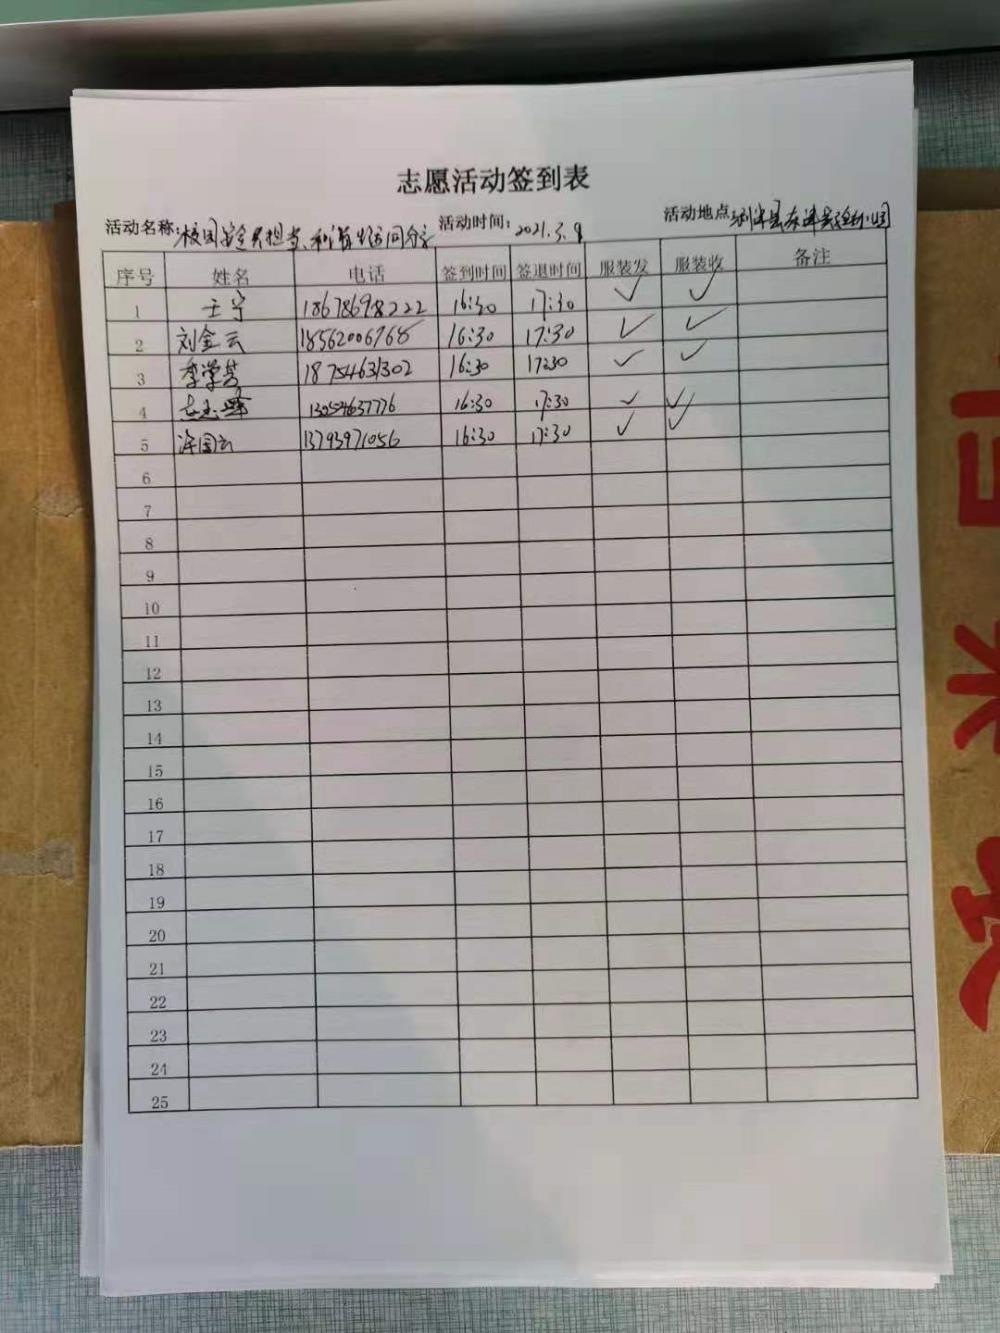 志愿活动签到表
活动名称:校园安全共担当、 活动时间: 2021.3.9 活动地点:利津县
序号 姓名 电话 签到时间 签退时间 服装发 服装收 备注
1 王宁 18678698222 16:30 17:30 ✓ ✓
2 刘金云 18562006768 16:30 17:30 ✓ ✓
3 李学芳 18754631302 16:30 17:30 ✓ ✓
4 13054637776 16:30 17:30 ✓ ✓
5 许国云 13793971056 16:30 17:30 ✓ ✓
6
7
8
9
10
11
12
13
14
15
16
17
18
19
20
21
22
23
24
25